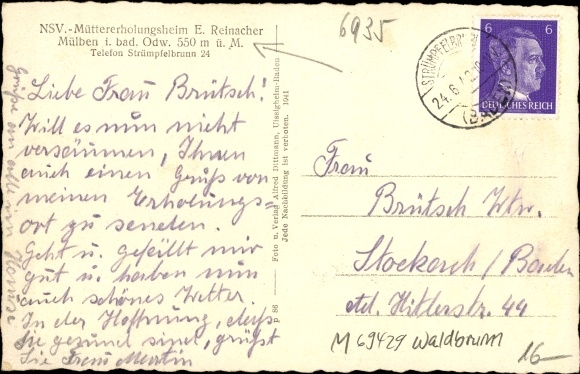 NSV.-Müttererholungsheim E. Reinacher
Mülben i. bad. Odw. 550 m ü. M.
Telefon Strümpfelbrunn 24
Liebe Frau Brütsch!
Will es nun nicht
versäumen, Ihnen
auch einen Gruß von
meinen Erholungs-
ort zu senden.
Geht u. gefällt mir
gut u. haben nun
auch schönes Wetter.
In der Hoffnung, dass
Sie gesund sind, grüßt
Sie Frau Martin
p 86
Foto u. Verlag Alfred Dittmann, Uissigheim-Baden
Jede Nachbildung ist verboten. 1941
6935
STRÜMPFELBRUNN
24.6.
(BADEN)
6 6
DEUTSCHES REICH
Frau
Brütsch Wtw.
Stockach / Baden
Ad. Hitlerstr. 44
M 69429 Waldbrunn
16—